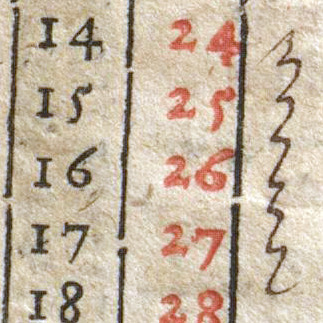 14 24
15 25
16 26
17 27
18 28